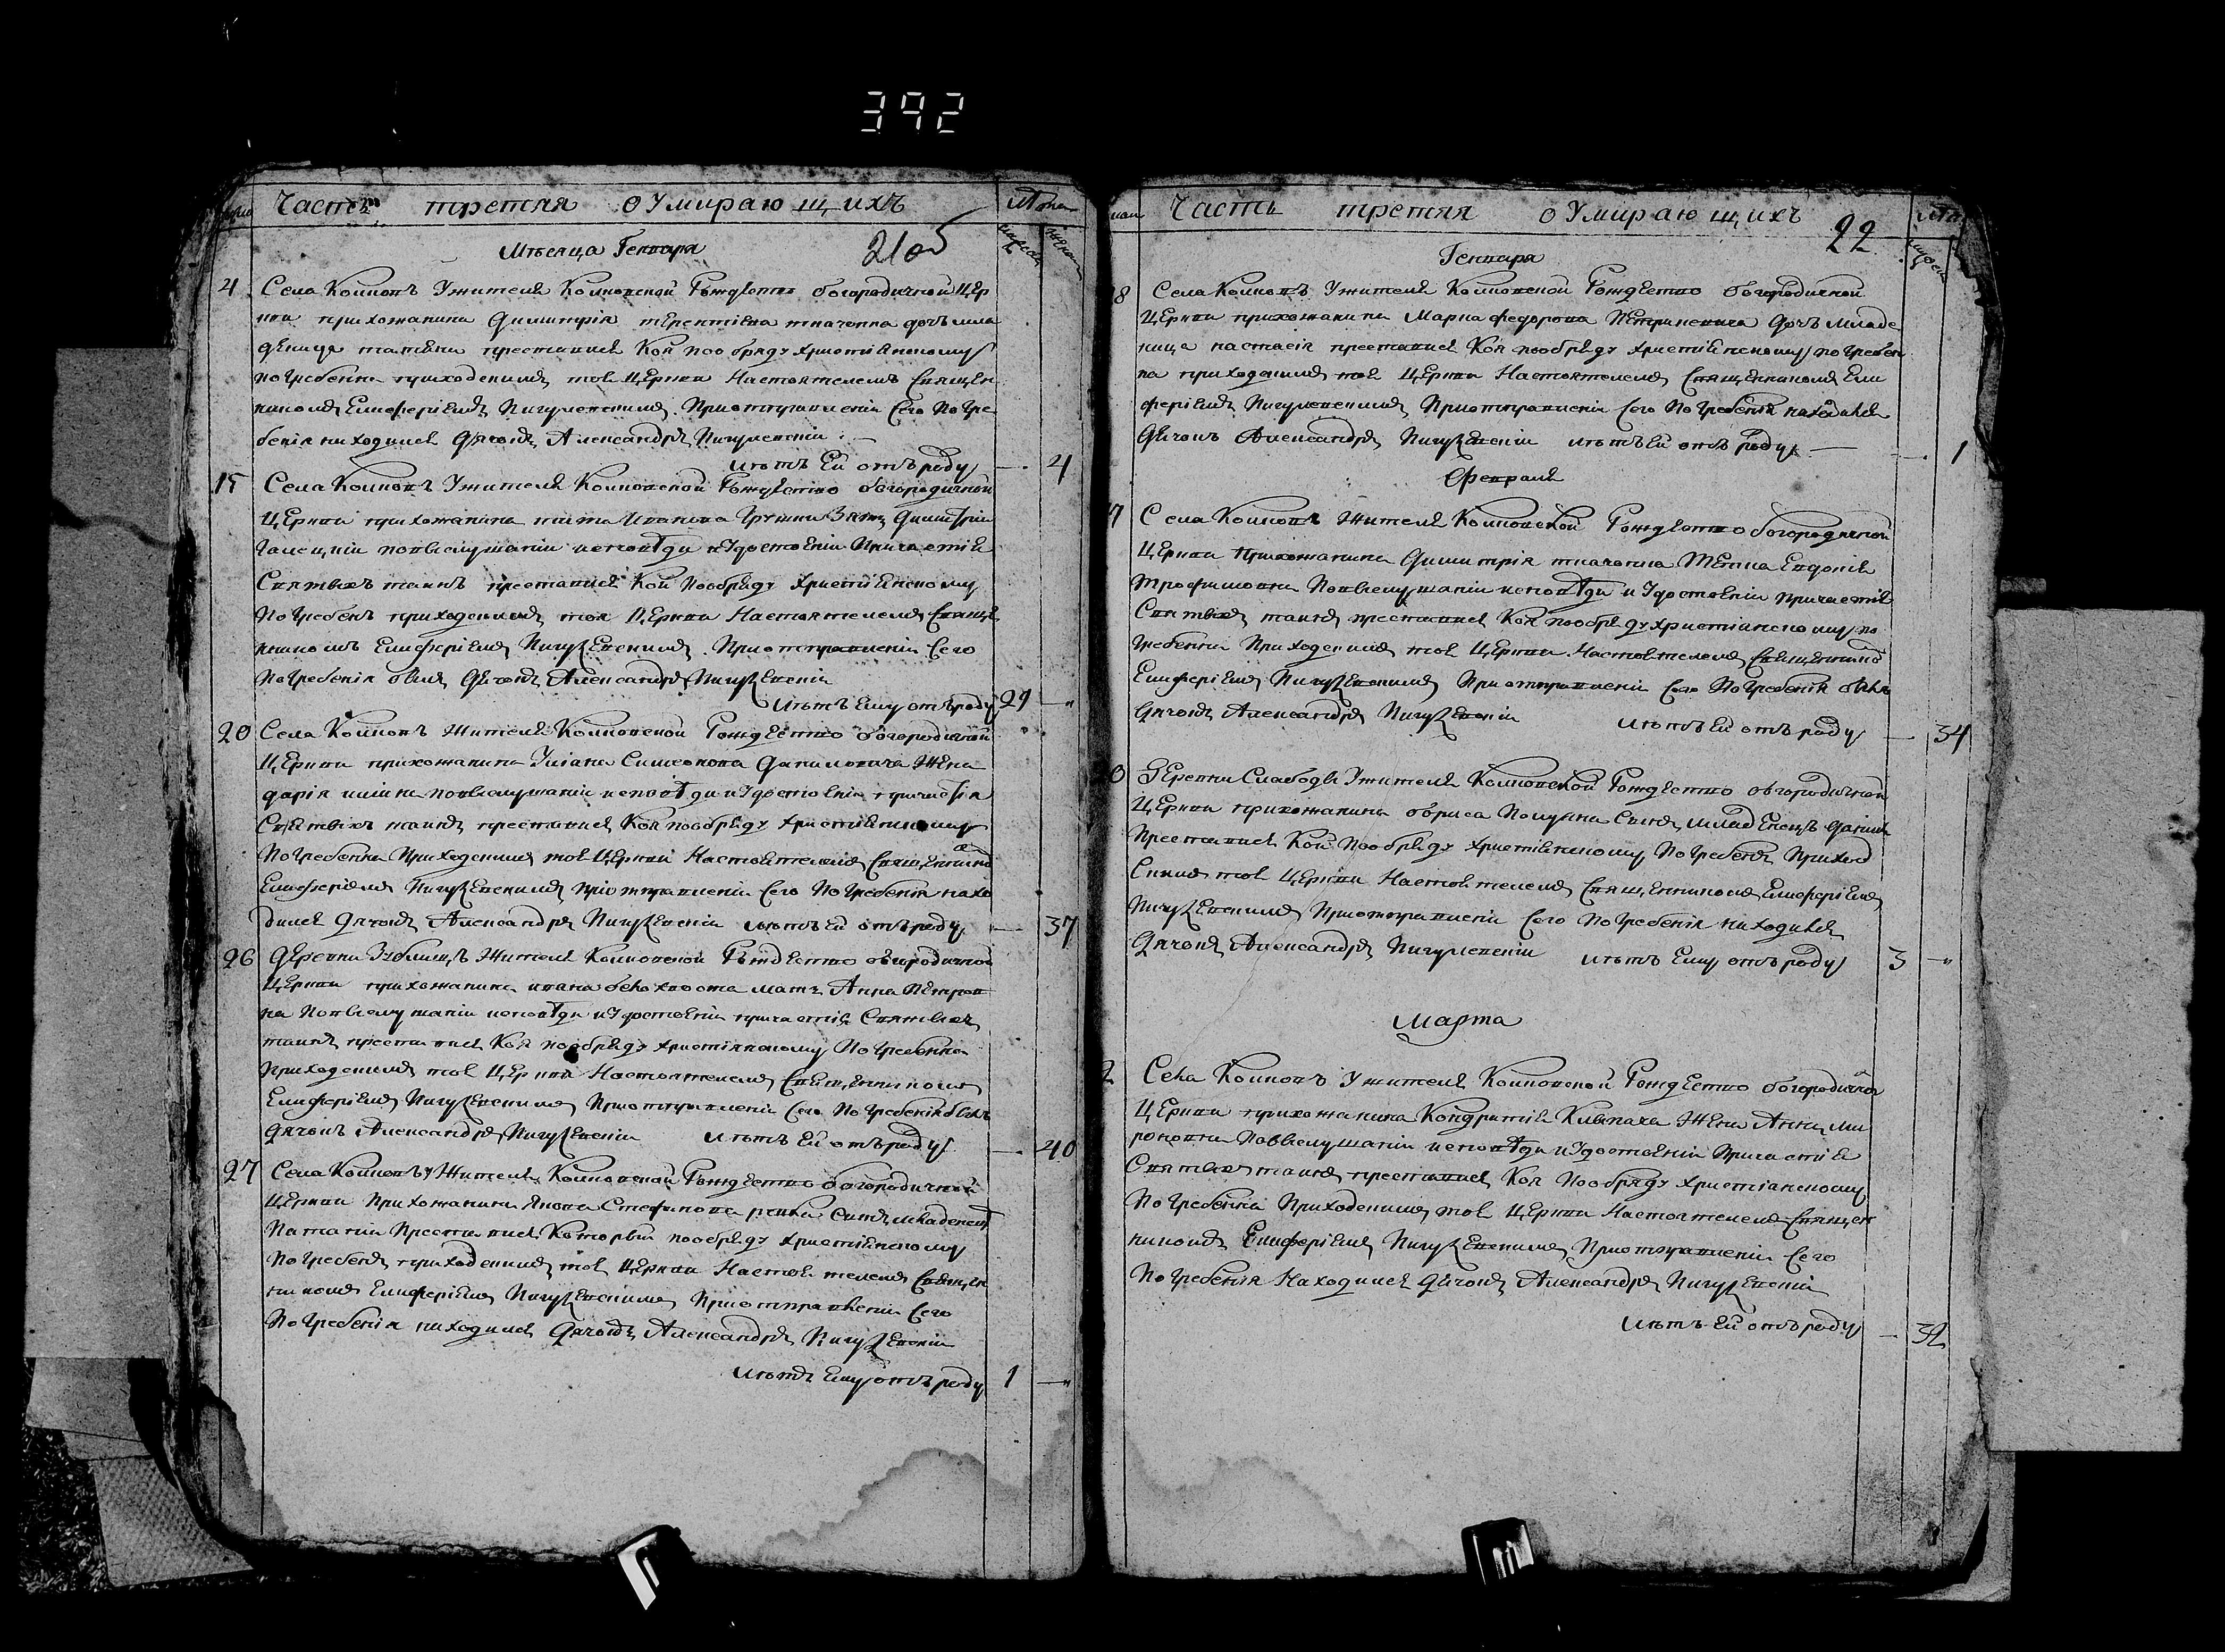 392
Часть третяя о Умирающихъ
Лѣта
21 об
Мѣсяца Генваря
4 Села Колковъ Ужителя Колковской Рождество богородичной Цер
кви прихожанина Димитрія терентіева ткаченка дочъ мла
деница татіяна преставися Коя пообряду христіянскому
погребенна приходскимъ тоя Церкви Настоятелемъ Священ
никомъ Елифѣріемъ Пигулевскимъ Приотправленіи Сего Погре
бенія находился Дячокъ Александръ Пигулевскій
лѣтъ Ей отъ роду — 4
15 Села Колковъ Ужителя Колковской Рождество богородичной
Церкви прихожанина Иванова Зять Димитрій
повыслушаніи исповѣди иУдостоеніи Причастія
Святыхъ таинъ преставися Кой Пообряду Христіянскому
Погребенъ приходскимъ тоя Церкви Настоятелемъ Священ
никомъ Елиферіемъ Пигулевскимъ Приотправленіи Сего
Погребенія былъ Дячокъ Александръ Пигулевскій
лѣтъ Ему отъ роду 29 —
20 Села Колковъ Жителя Колковской Рождество богородичной
Церкви прихожанина Симеонова Даниловича Жена
дарія повыслушаніи исповѣди иУдостоеніи причастія
Святыхъ таинъ преставися Коя пообряду христіянскому
Погребенна Приходскимъ тоя Церкви Настоятелемъ Священникомъ
Елиферіемъ Пигулевскимъ приотправленіи Сего Погребенія нахо
дился Дячокъ Александръ Пигулевскій лѣтъ Ей отъ роду — 37
26 Деревни Жителя Колковской Рождество богородичной
Церкви прихожанина ивана белохвоста мать Анна Петров
на Повыслушаніи исповѣди иУдостоеніи причастія Святыхъ
таинъ преставися Коя пообряду христіянскому Погребенна
приходскимъ тоя Церкви Настоятелемъ Священникомъ
Елиферіемъ Пигулевскимъ Приотправленіи Сего Погребенія былъ
дячокъ Александръ Пигулевскій лѣтъ Ей отъ роду — 40
27 Села Колковъ Ужителя Колковской Рождество богородичной
Церкви Прихожанина Якова Стефанова Сынъ младенецъ
Преставися Который пообряду христіянскому
Погребенъ приходскимъ тоя Церкви Настоятелемъ Священ
никомъ Елиферіемъ Пигулевскимъ Приотправленіи Сего
Погребенія находился Дячокъ Александръ Пигулевскій
лѣтъ Ему отъ роду 1 —
Часть третяя о Умирающихъ
22
Генваря
8 Села Колковъ Ужителя Колковской Рождество богородичной
Церкви прихожанина Марка федорова Дочъ младе
ница настасія преставися Коя пообряду христіянскому погребен
на приходскимъ тоя Церкви Настоятелемъ Священникомъ Ели
феріемъ Пигулевскимъ Приотправленіи Сего Погребенія находился
Дячокъ Александръ Пигулевскій лѣтъ Ей отъ роду — 1
Февраля
7 Села Колковъ Жителя Колковской Рождество богородичной
Церкви Прихожанина Димитрія ткаченка Жена Евдокія
трофимовна Повыслушаніи исповѣди и Удостоеніи причастія
Святыхъ таинъ преставися Коя пообряду христіанскому по
гребенна Приходскимъ тоя Церкви Настоятелемъ Священникомъ
Елиферіемъ Пигулевскимъ Приотправленіи Сего Погребенія былъ
Дячокъ Александръ Пигулевскій лѣтъ Ей отъ роду — 34
0 Деревни Слабоды Ужителя Колковской Рождество богородичной
Церкви прихожанина бориса Сынъ младенецъ
Преставися Кой Пообряду христіянскому Погребенъ Приход
Скимъ тоя Церкви Настоятелемъ Священникомъ Елиферіемъ
Пигулевскимъ Приотправленіи Сего Погребенія находился
Дячокъ Александръ Пигулевскій лѣтъ Ему отъ роду 3 —
Марта
2 Села Колковъ Ужителя Колковской Рождество богородичной
Церкви прихожанина Кондратія Жена Анна ми
роновна Повыслушаніи исповѣди иУдостоеніи Причастія
Святыхъ таинъ преставися Коя Пообряду Христіанскому
Погребенна Приходскимъ тоя Церкви Настоятелемъ Священ
никомъ Елиферіемъ Пигулевскимъ Приотправленіи Сего
Погребенія Находился Дячокъ Александръ Пигулевскій
лѣтъ Ей отъ роду — 32